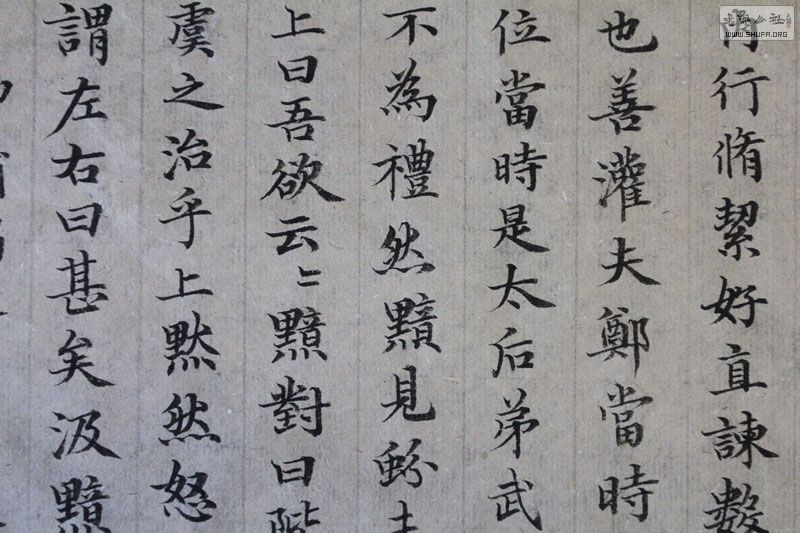 行脩絜好直諫數
也善灌夫鄭當時
位當時是太后弟武
不為禮然黯見蚡
上曰吾欲云〻黯對曰陛
虞之治乎上默然怒
謂左右曰甚矣汲黯
WWW.SHUFA.ORG